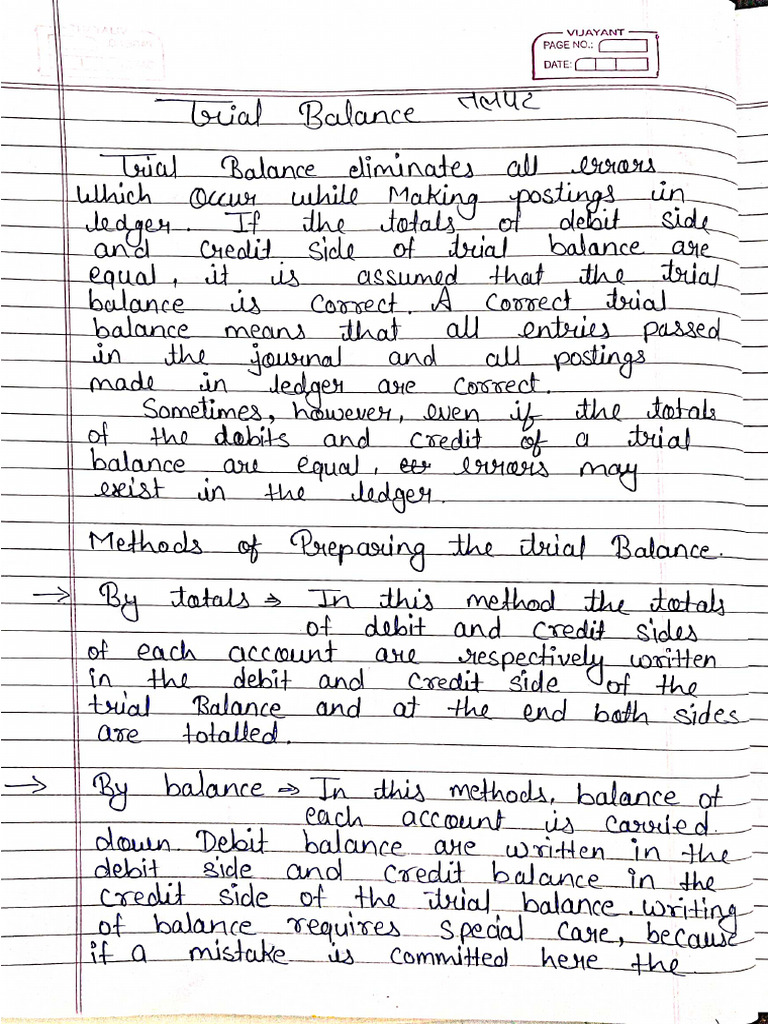 VIJAYANT
PAGE NO.:
DATE:
Trial Balance तलपट
Trial Balance eliminates all errors
which occur while Making postings in
ledger. If the totals of debit side
and credit side of trial balance are
equal, it is assumed that the trial
balance is correct. A correct trial
balance means that all entries passed
in the journal and all postings
made in ledger are correct.
Sometimes, however, even if the totals
of the debits and credit of a trial
balance are equal, errors may
exist in the ledger.
Methods of Preparing the trial Balance.
→ By totals ⇒ In this method the totals
of debit and credit sides
of each account are respectively written
in the debit and credit side of the
trial Balance and at the end both sides
are totalled.
→ By balance ⇒ In this methods, balance of
each account is carried
down. Debit balance are written in the
debit side and credit balance in the
credit side of the trial balance. writing
of balance requires special care, because
if a mistake is committed here the